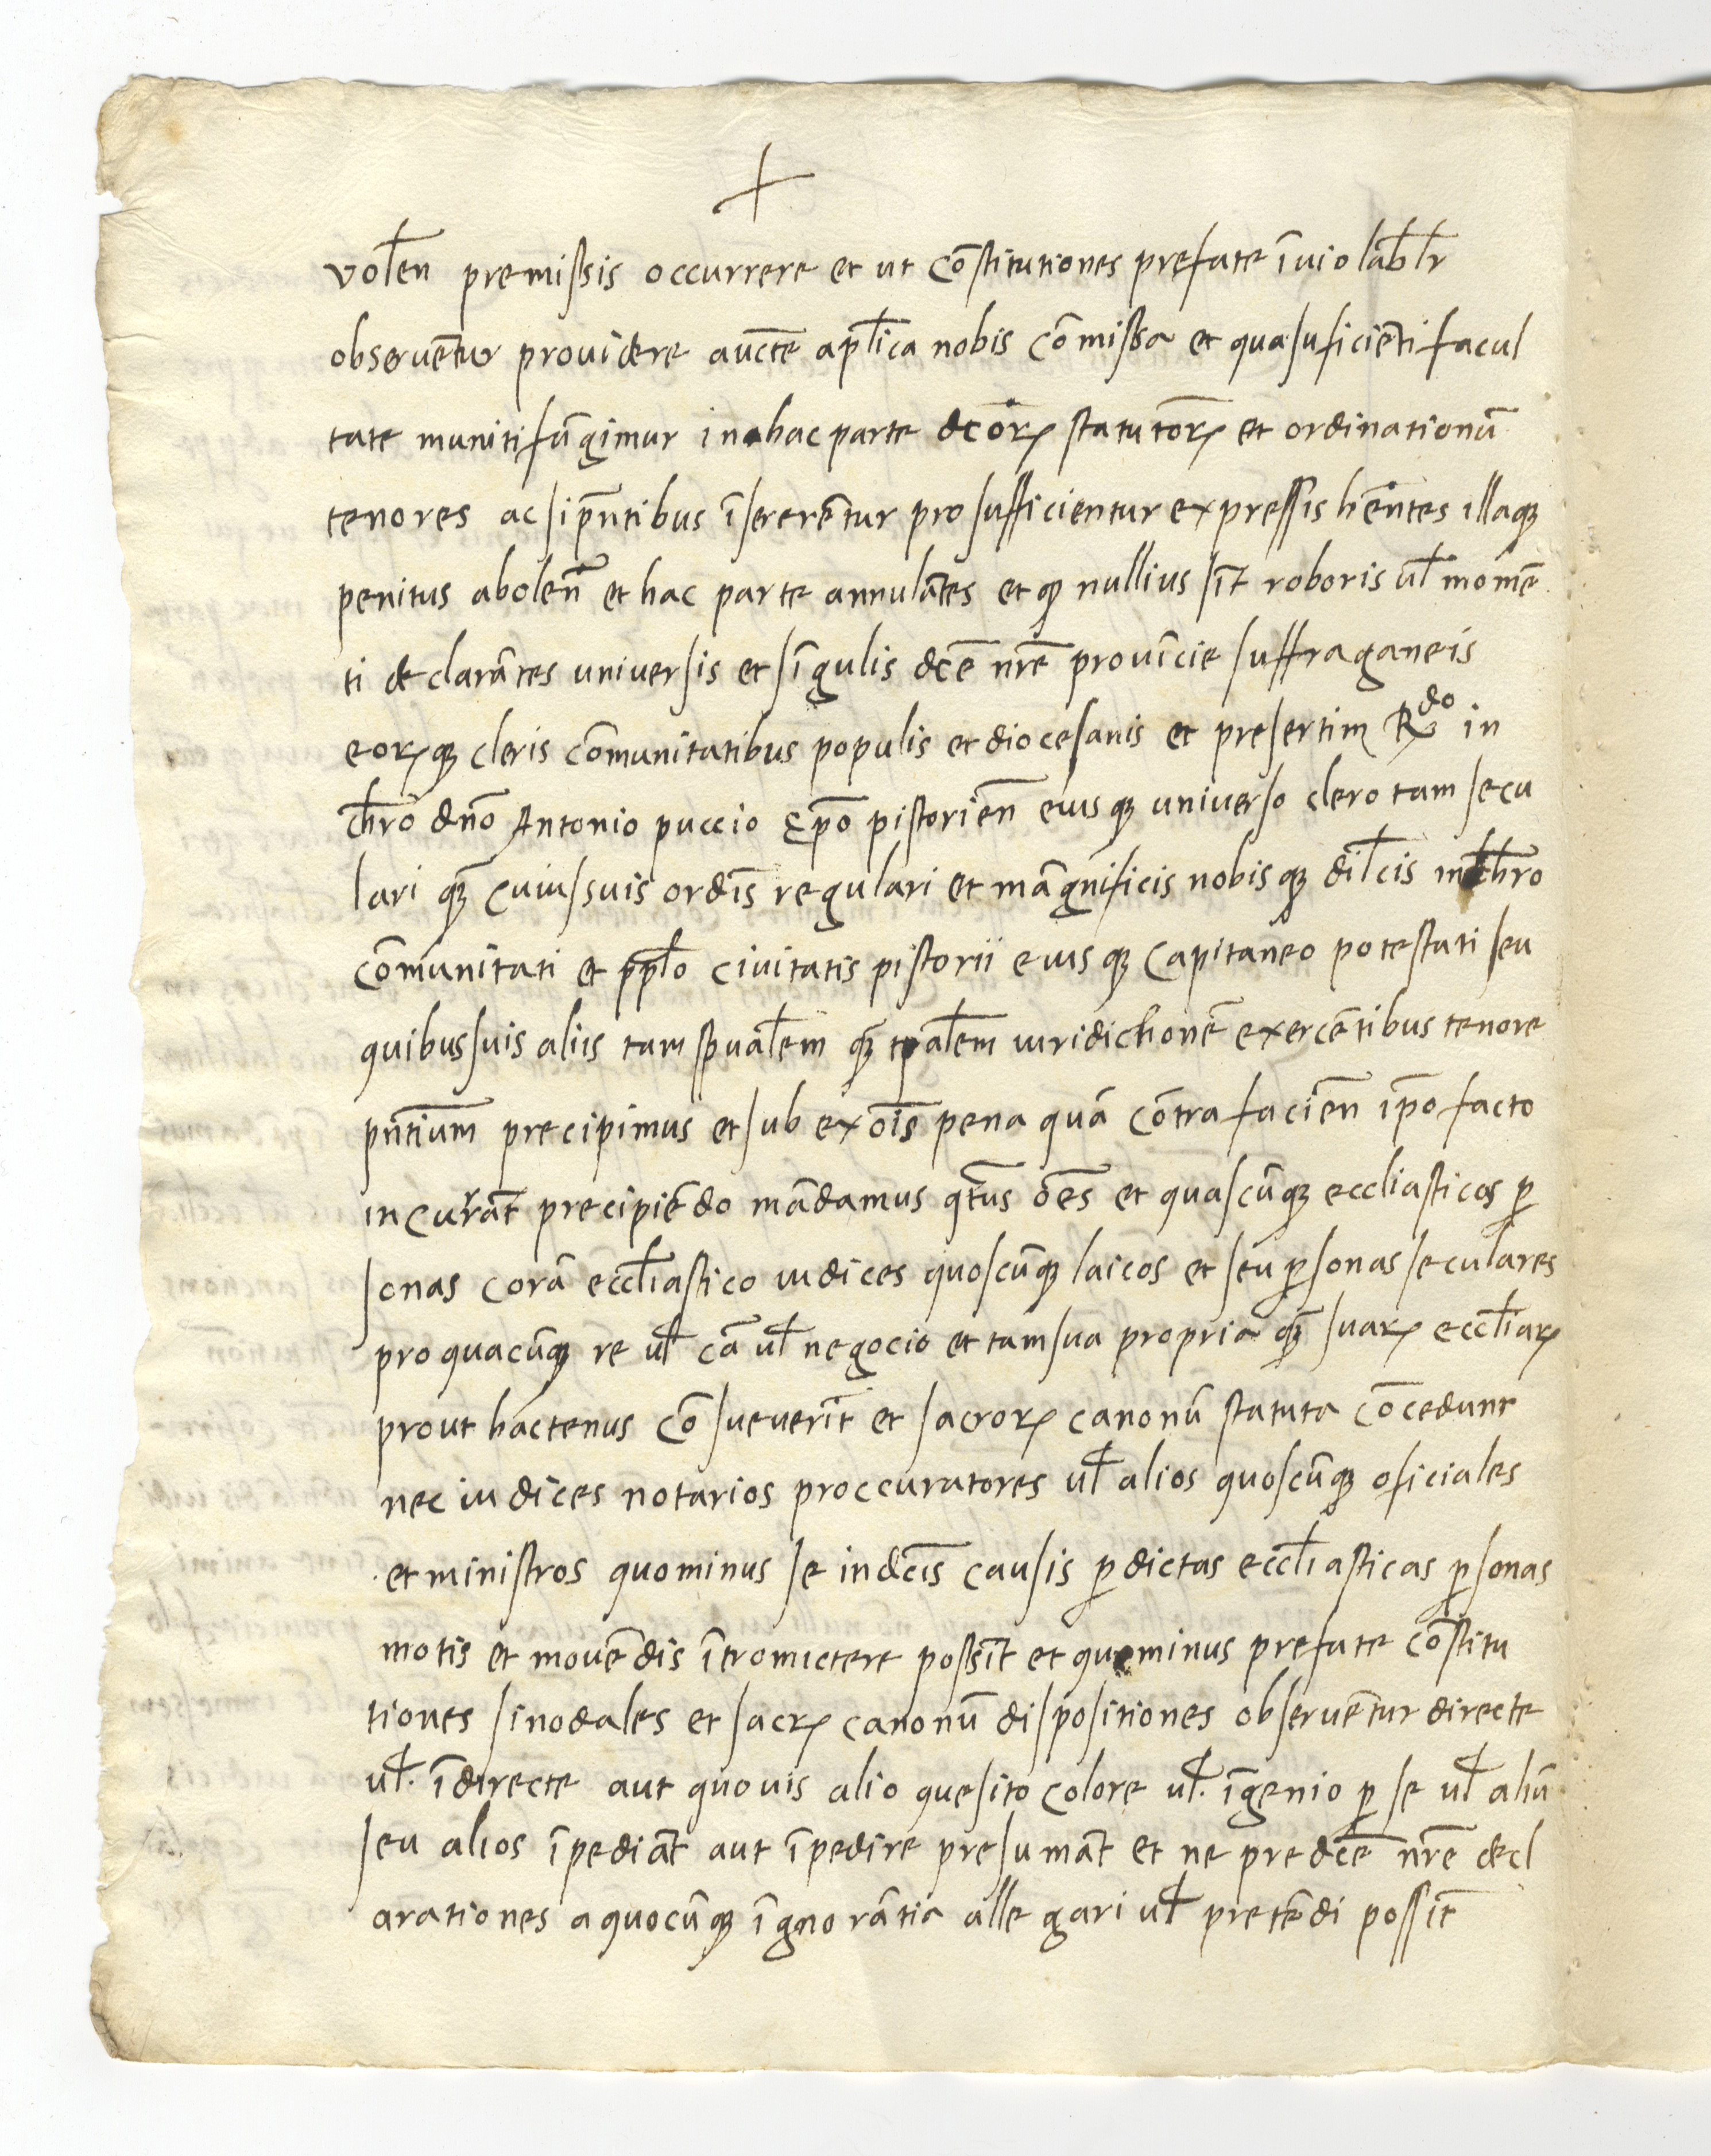 +
volen̄ premissis occurrere et ut cōstitutiones prefate īviolabl̄r
observēntur providere auctē aplīca nobis cōmissa et qua suficiēti facul
tate muniti fūgimur in hac parte dcōrꝝ statutorꝝ et ordinationū
tenores ac si pn̄tibus īsererētur pro sufficientur expressis hēntes illaqꝫ
penitus abolen̄ et hac parte annulātes et qꝫ nullius sīt roboris ul̄ momē
ti declarātes universis et sīgulis dcē nr̄e provīcie suffraganeis
eorꝝqꝫ cleris cōmunitatibus populis et diocesanis et presertim R^do in
chr̄o dn̄o Antonio puccio Epō pistorien̄ eiusqꝫ universo clero tam secu
lari qꝫ̄ cuiussuis ordīs regulari et māgnificis nobisqꝫ dil̄cis in chr̄o
cōmunitati et ppl̄o civitatis pistorii eiusqꝫ capitaneo potestati seu
quibussuis aliis tam spūalem qꝫ̄ tp̄alem iuridictionē exercētibus tenore
pn̄tium precipimus et sub exōis pena quā cōtra facien̄ ip̄o facto
incurrāt precipiēdo mādamus qt̄us ōes et quascūqꝫ eccliasticas ꝑ
sonas corā eccl̄iastico iudices quoscūqꝫ laicos et seu ꝑsonas seculares
pro quacūqꝫ re ul̄ cā ul̄ negocio et tam sua propria qꝫ̄ suarꝝ eccl̄iarꝝ
prout hactenus cōsueverīt et sacrorꝝ canonū statuta cōcedunt
nec iudices notarios proccuratores ul̄ alios quoscūqꝫ oficiales
et ministros quominus se in dcīs causis ꝑ dictas eccl̄iasticas ꝑsonas
motis et movēdis ītromictere possīt et quominus prefate cōstitu
tiones sinodales et sacrꝝ canonū dispositiones observētur directe
ul̄. īdirecte aut quovis alio quesito colore ul̄. īgenio ꝑ se ul̄ aliū
seu alios īpediāt aut īpedire presumāt et ne predcē nr̄e decl
arationes a quocūqꝫ īgnorātia allegari ul̄ pretēdi possīt